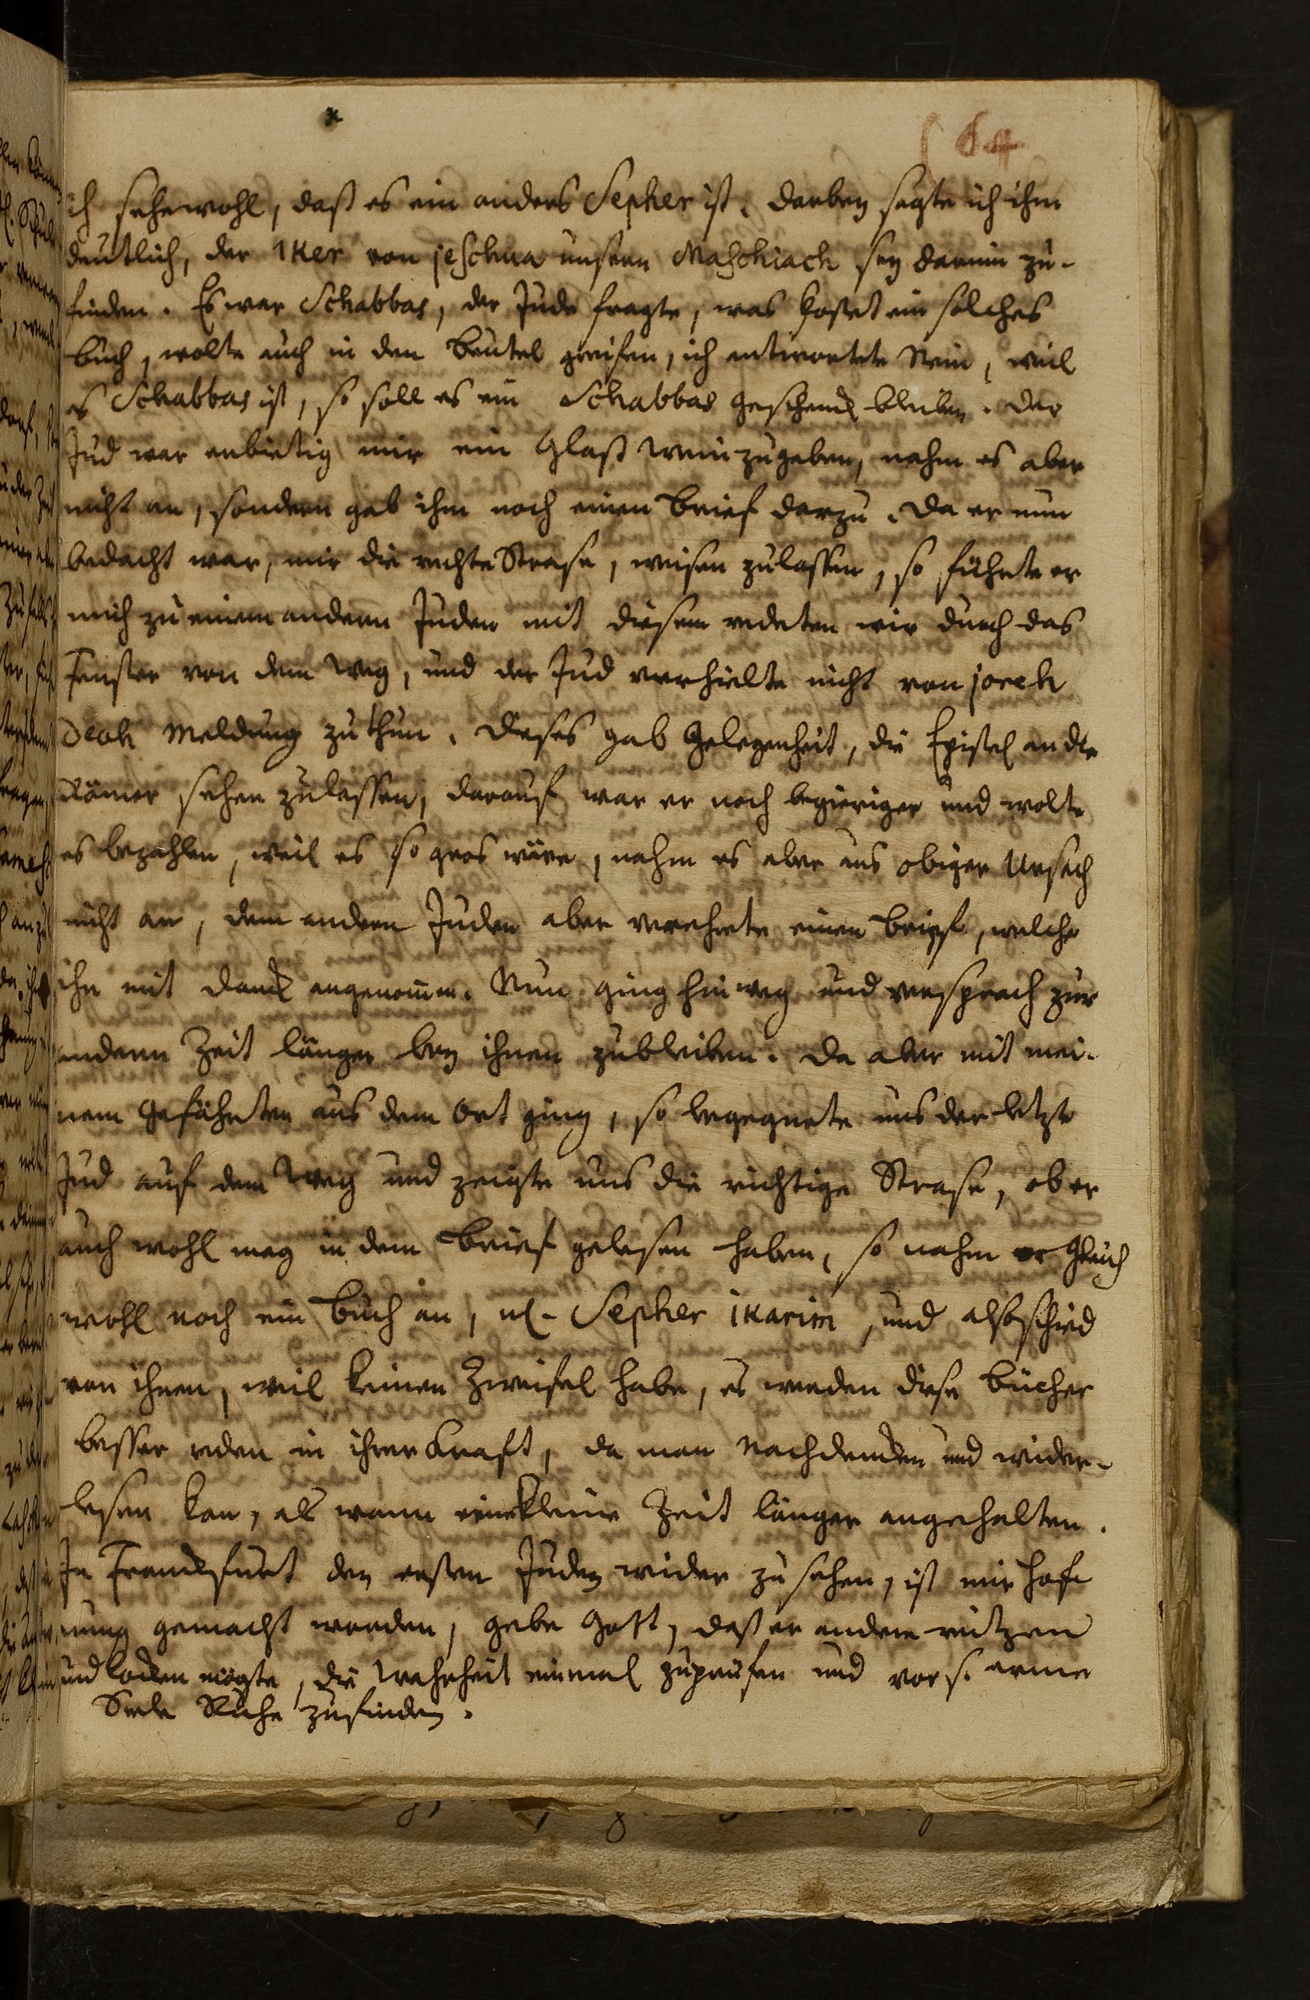 64
ich sehe wohl, daß es ein anders Sepher ist. darbey sagte ich ihm
deutlich, der Iker von jeschua unsern Maschiach sey darinn zu-
finden. Es war Schabbas, der Jude fragte, was kostet ein solches
buch, wolte auch in den beutel greifen, ich antwortete Nein, weil
es Schabbas ist, so soll es ein Schabbas geschenck bleiben. der
Jud war erbietig mir ein Glaß wein zugeben, nahm es aber
nicht an, sondern gab ihm noch einen brief darzu. da er nun
bedacht war, mir die rechte Strase, weisen zulassen, so führte er
mich zu einem andern Juden mit diesem redeten wir durch das
Fenster von dem weg, und der Jud verhielte nicht von joreh
deah meldung zuthun. dieses gab gelegenheit, die Epistel an die
Römer sehen zulassen, darauf war er noch begieriger und wolte
es bezahlen, weil es so gros wäre, nahm es aber aus obiger Ursach
nicht an, dem andern Juden aber verehrte einen brief, welche
ihn mit danck angenomen. Nun ging hinweg und versprach zur
andern Zeit länger bey ihnen zubleiben. da aber mit mei-
nem gefährten aus dem Ort ging, so begegnete uns der letzte
Jud auf dem weg und zeigte uns die richtige Strase, ob er
auch wohl mag in dem brief gelesen haben, so nahm er gleich
wohl noch ein buch an, nl. Sepher ikarim, und also schied
von ihnen, weil keinen Zweifel habe, es werden diese bücher
besser reden in ihrer Kraft, da man nachdencken und wider-
lesen kan, als wann eine kleine Zeit länger angehalten.
In Franckfurt den ersten Juden wider zu sehen, ist mir hof-
nung gemacht worden, gebe Gott, daß er andere reitzen
und locken mögte, die Wahrheit einmal zuprüfen und vor s. arme
Seele Ruhe zufinden.